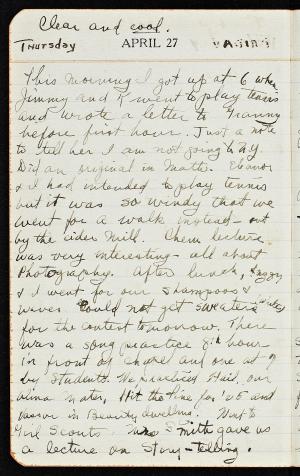 Clear and cool.
Thursday APRIL 27
This morning I got up at 6 when
Jimmy and K went to play tennis
and wrote a letter to Granny
before first hour. Just a note
to tell her I am not going to
Did an original in Math. Eleanor
& I had intended to play tennis
but it was so windy that we
went for a walk instead - out
by the cider mill. Chem lecture
was very interesting - all about
Photography. After lunch,
& I went for our shampoos &
waves. Could not get sweaters
for the contest tomorrow. There
was a song practice 8th hour
in front of chapel and one at 7
by students. We practiced Hail, our
alma mater, Hit the line for '25 and
Vassar in Beauty dwelling. Went to
Girl Scouts. Miss Smith gave us
a lecture on Story-telling.